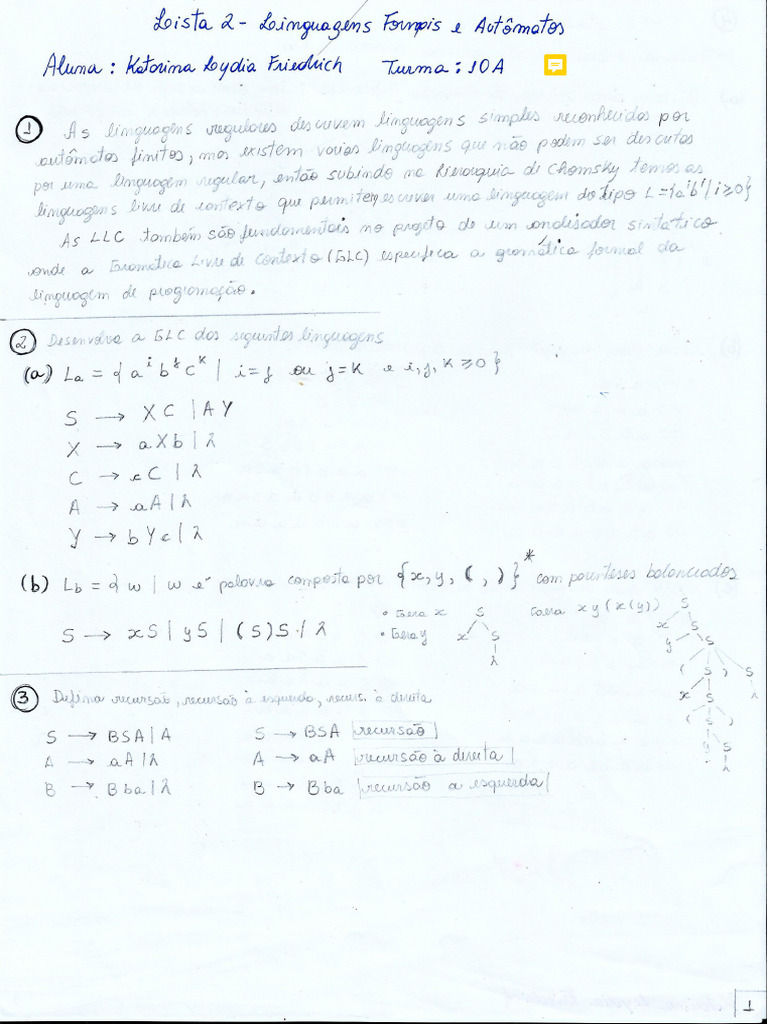 Lista 2 - Linguagens Formais e Autômatos
Aluna : Katarina Lydia Friedrich Turma : 10A
1 As linguagens regulares descrevem linguagens simples reconhecidas por
autômatos finitos, mas existem varias linguagens que não podem ser descritas
por uma linguagem regular, então subindo na hierarquia de Chomsky temos as
linguagens livre de contexto que permitem escrever uma linguagem do tipo L={aⁱbⁱ | i≥0}
As LLC também são fundamentais no projeto de um analisador sintático
onde a Gramática Livre de Contexto (GLC) especifica a gramática formal da
linguagem de programação.
2 Desenvolva a GLC das seguintes linguagens
(a) La = { aⁱ bʲ cᵏ | i=j ou j=k e i,j,k ≥0 }
S → XC | AY
X → aXb | λ
C → cC | λ
A → aA | λ
Y → bYc | λ
(b) Lb = { w | w é palavra composta por {x,y, (, )}* com parênteses balanceados
S → xS | yS | (S)S | λ
• Gera x
• Gera y
S
x S
λ
Gera xy(x(y))
S
x S
y S
( S ) S
x S λ
( S )
y S
λ
3 Defina recursão, recursão à esquerda, recurs. à direita
S → BSA | A S → BSA recursão
A → aA | λ A → aA recursão à direita
B → Bba | λ B → Bba recursão a esquerda
1